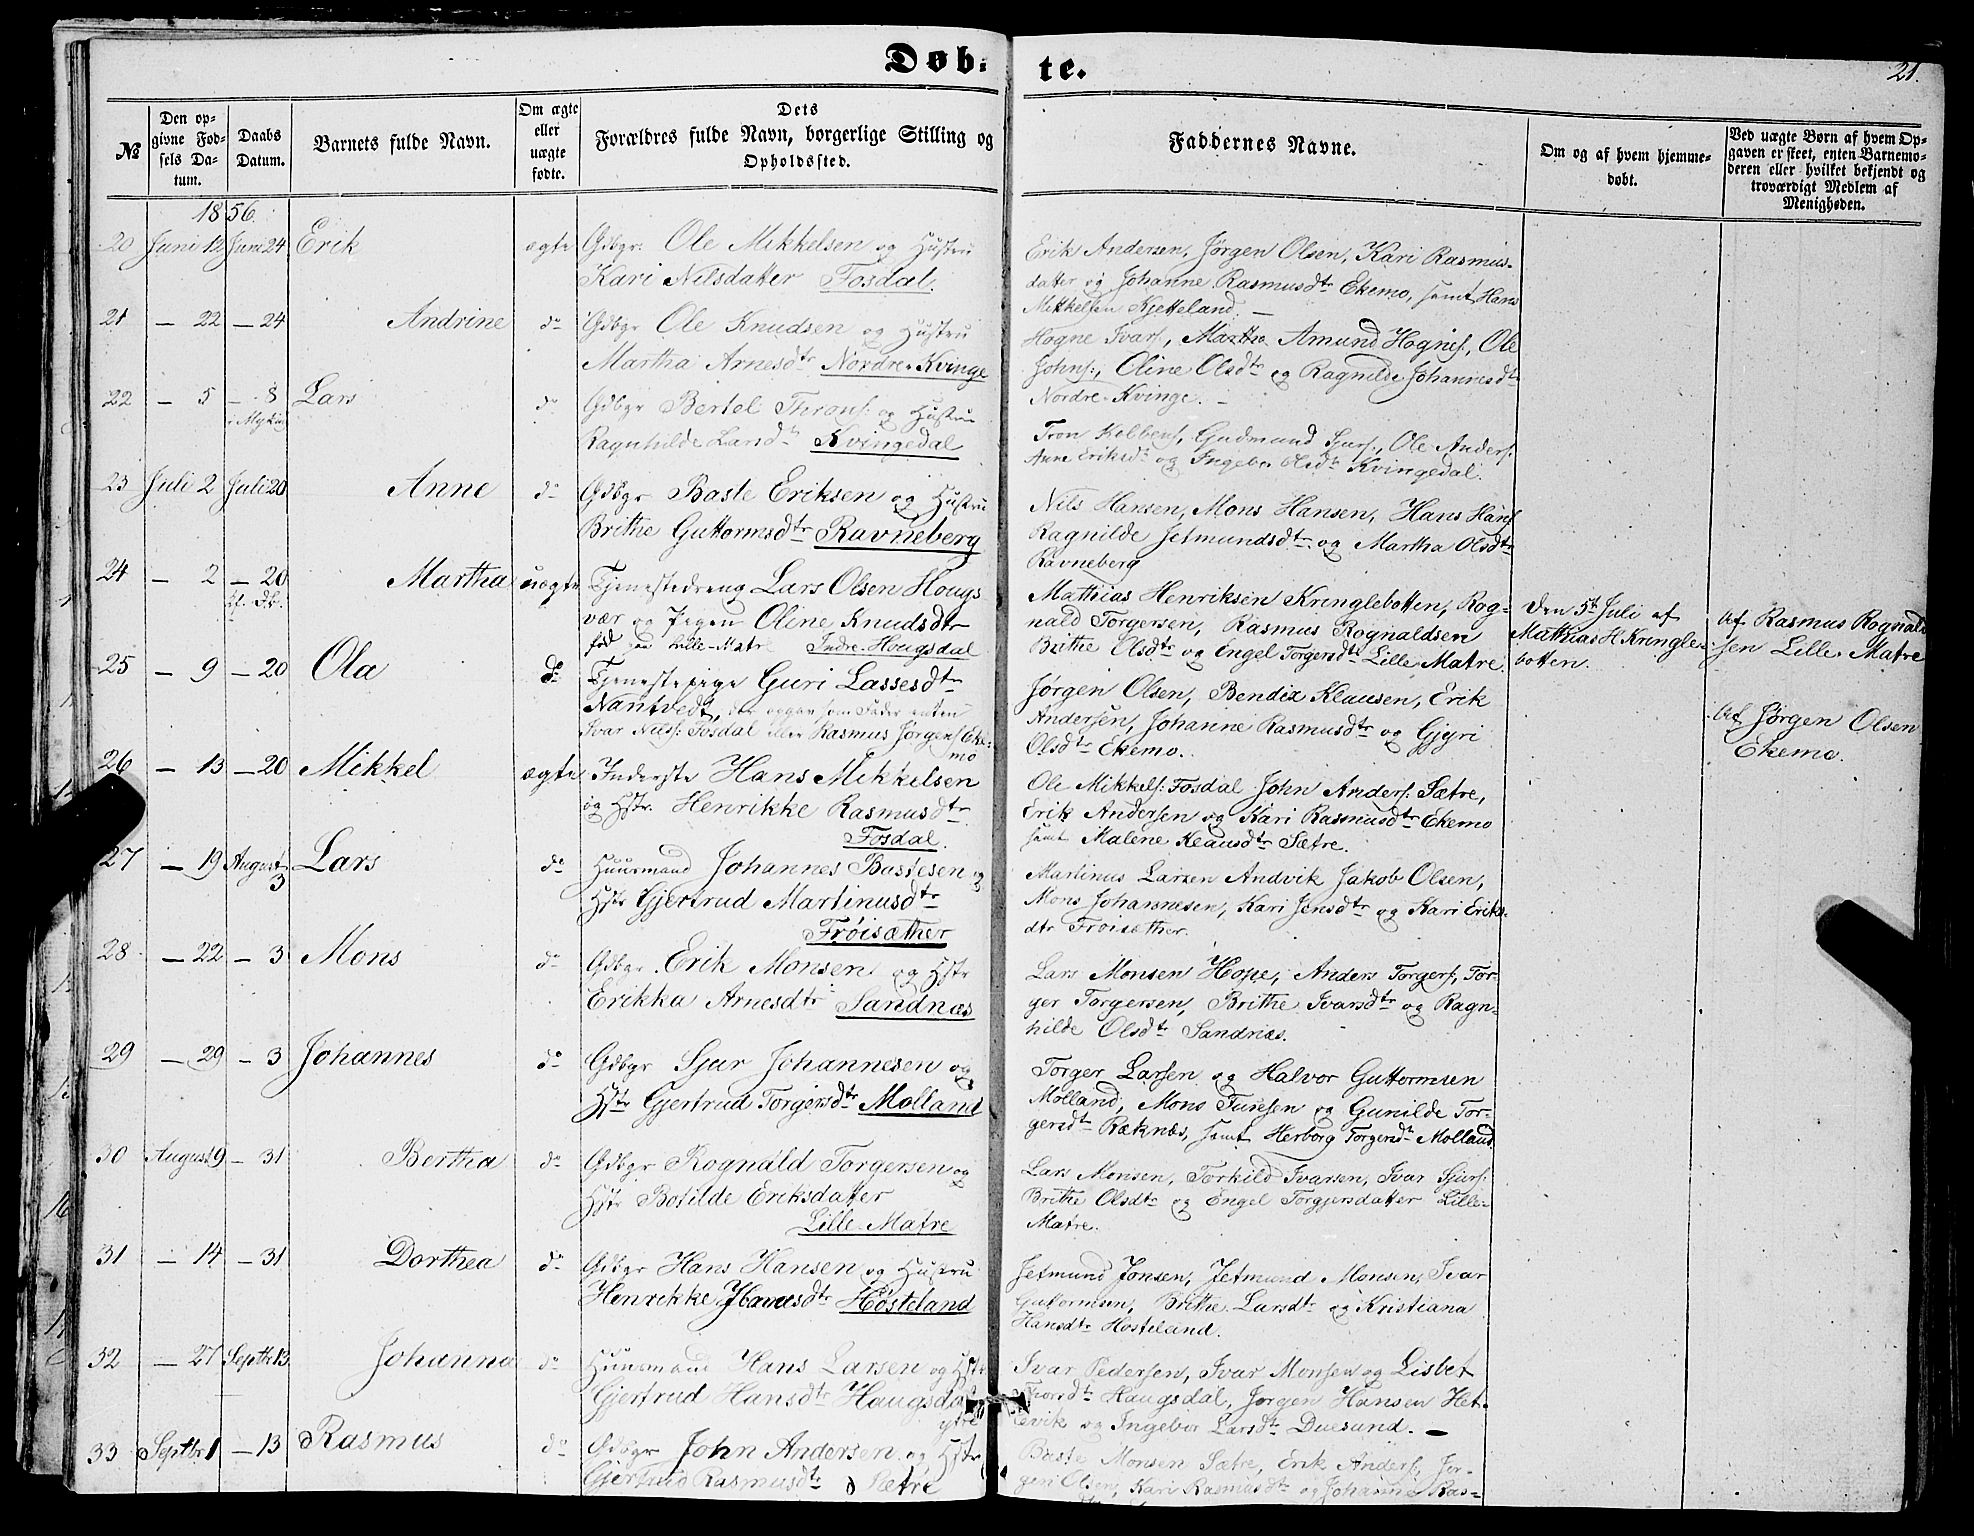 Døb-
te.
21.
№
Den op-
givne Fød-
sels Da-
tum.
Daabs
Datum.
Barnets fulde Navn.
Om ægte
eller
uægte
fødte.
Dets
Forældres fulde Navn, borgerlige Stilling og
Opholdssted.
Faddernes Navne.
Om og af hvem hjemme-
døbt.
Ved uægte Børn af hvem Op-
gaven er skeet, enten Barnemo-
deren eller hvilket bekjendt og
troværdigt Medlem af
Menigheden.
1856.
20 Juni 12 Juni 24 Erik ægte Gdbgr: Ole Mikkelsen og Hustru
Kari Nilsdatter Fosdal.
Erik Andersen, Jørgen Olsen, Kari Rasmus-
datter og Johanne Rasmusdtr Ekemo, samt Hans
Mikkelsen Kjetteland. —
21 — 22 — 24 Andrine do Gdbgr Ole Knudsen og Hustru
Martha Arnesdtr Nordre-Kvinge
Hogne Ivars, Amund Hognes., Ole
Johns:, Oline Olsdtr og Ragnilde Johannesdtr
Nordre-Kvinge. —
22 — 5 — 8 Lars do Gdbgr Bertel Throns: og Hustru
i Myking
Ragnhilde Larsdtr Kvingedal
Tron Kolbens, Gudmund Sjurs., Ole Anders:
Anne Eriksdtr og Ingebor Olsdtr Kvingedal.
23 Juli 2 Juli 20 Anne do Gdbgr Baste Eriksen og Hustru
Brithe Guttormsdtr Ravneberg
Nils Hansen, Mons Hansen, Hans Hans
Ragnilde Jetmundsdtr og Martha Olsdtr
Ravneberg
24 — 2 — 20 Martha uægte Tjenestedreng Lars Olsen Hougs
vær og Pigen Oline Knudsdtr
Lille-Matre Indre-Hougsdal
Mathias Henriksen Kringlebotten, Rog-
nald Torgersen, Rasmus Rognaldsen
Brithe Olsdtr og Engel Torgersdtr Lille Matre.
Den 5te Juli af
Mathias H Kringle-
botten.
Af Rasmus Rognald
sen Lille-Matre
25 — 9 — 20 Ola do Tjenestepige Guri Lassesdtr
Nantvedt, der opgav som Fader enten
Ivar Nilss: Fosdal eller Rasmus Jørgens Eke-
mo
Jørgen Olsen, Bendix Klausen, Erik
Andersen, Johanne Rasmusdtr og Gjyri
Olsdtr Ekemo.
Af Jørgen Olsen
Ekemo.
26 — 13 — 20 Mikkel ægte Inderste Hans Mikkelsen
og Hstr. Henrikke Rasmusdtr
Fosdal.
Ole Mikkels: Fosdal John Anders: Sætre,
Erik Andersen og Kari Rasmusdtr Ekemo
samt Malene Klausdtr Sætre.
27 — 19 August 3 Lars do Huusmand Johannes Bastesen og
Hstr Gjertrud Martinusdtr
Frøisæther
Martinus Larsen Andvik Jakob Olsen,
Mons Johannesen, Kari Jensdtr og Kari Eriks-
dtr Frøisæther.
28 — 22 — 3 Mons do Gdbgr. Erik Monsen og Hstr
Erikka Arnesdtr Sandnæs
Lars Monsen Hope, Anders Torgers, Tor-
ger Torgersen, Brithe Ivarsdtr og Ragn-
hilde Olsdtr Sandnæs.
29 — 29 — 3 Johannes do Gdbgr Sjur Johannesen og
Hstr Gjertrud Torgersdtr Molland
Torger Larsen og Halvor Guttormsen
Molland, Mons Furesen og Gunilde Tor-
gersdtr Ræknæs, samt Herborg Torgersdtr Molland
30 August 9 — 31 Bertha do Gdbgr Rognald Torgersen og
Hstr Botilde Eriksdatter
Lille-Matre
Lars Monsen, Torkild Ivarsen, Ivar Sjurs:
Brithe Olsdtr og Engel Torgersdatter Lille-
Matre.
31 — 14 — 31 Dorthea do Gdbgr Hans Hansen og Hustru
Henrikke Hansdtr Høsteland
Jetmund Jonsen, Jetmund Monsen, Ivar
Guttormsen, Brithe Larsdtr og Kristiana
Hansdtr Høsteland.
32 — 27 Septbr 13 Johanna do Huusmand Hans Larsen og Hstr
Gjertrud Hansdtr Haugsdal
ytre
Ivar Pedersen, Ivar Monsen og Lisbet
Thorsdtr Haugsdal, Jørgen Hansen Het-
levik og Ingebor Larsdtr Duesund. —
33 Septbr 1 — 13 Rasmus do Gdbgr John Andersen og Hstr
Gjertrud Rasmusdtr Sætre
Baste Monsen Sætre, Erik Anders:, Jør-
gen Olsen, Kari Rasmusdtr og Johanne Ras-